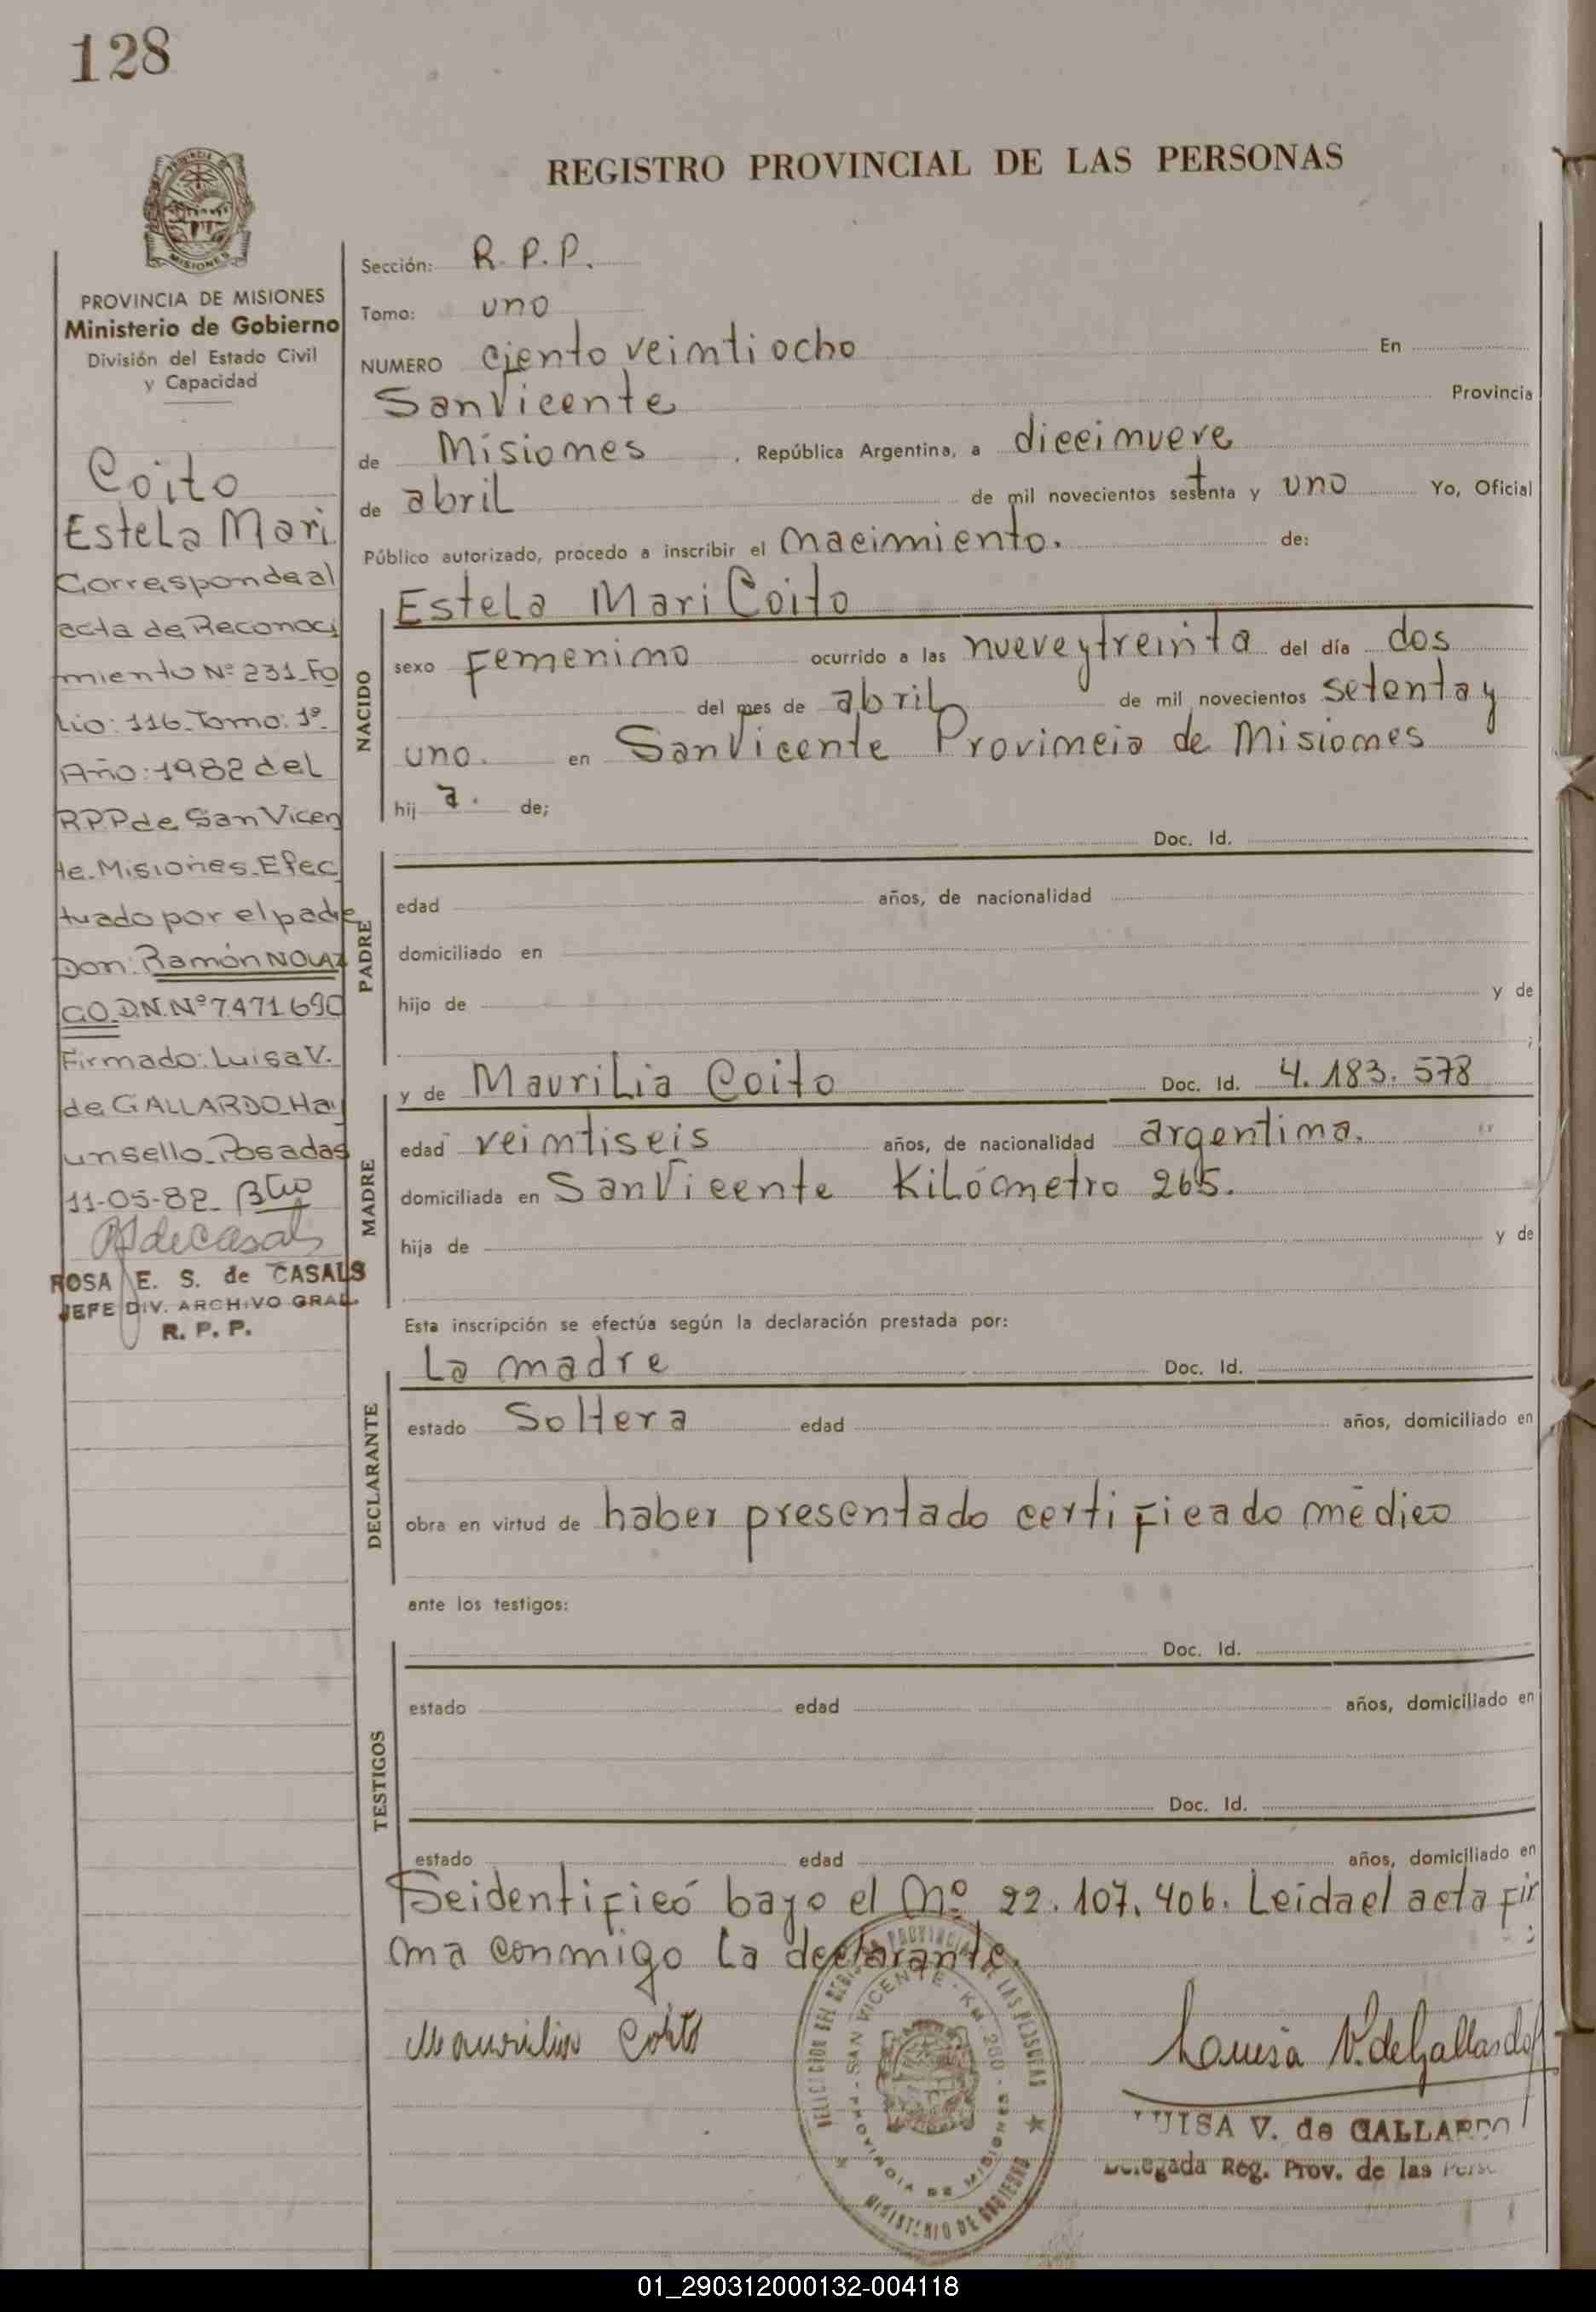 128
REGISTRO PROVINCIAL DE LAS PERSONAS
MISIONES
PROVINCIA DE MISIONES
Ministerio de Gobierno
División del Estado Civil
y Capacidad
Coito
Estela Mari.
Corresponde al
acta de Reconoci
miento Nº 231_Fo
lio: 116_Tomo: 1º_
Año: 1982 del
R.P.P de San Vicen
te. Misiones_Efec
tuado por el padre
Don: Ramón NOLAZ
CO_D.N.Nº 7.471.690
Firmado: Luisa V.
de GALLARDO_Hay
un sello_Posadas
11-05-82_
ROSA E. S. de CASALS
JEFE DIV. ARCHIVO GRAL.
R. P. P.
Sección: R. P. P.
Tomo: uno
NUMERO ciento veintiocho En
San Vicente Provincia
de Misiones . República Argentina, a diecinueve
de abril de mil novecientos setenta y uno Yo, Oficial
Público autorizado, procedo a inscribir el nacimiento. de:
NACIDO
Estela Mari Coito
sexo Femenino ocurrido a las nueve y treinta del día dos
del mes de abril de mil novecientos setenta y
uno. en San Vicente Provincia de Misiones
hij a. de;
PADRE
Doc. Id.
edad años, de nacionalidad
domiciliado en
hijo de y de
;
MADRE
y de Maurilia Coito Doc. Id. 4.183.578
edad veintiseis años, de nacionalidad argentina.
domiciliada en San Vicente Kilómetro 265.
hija de y de
Esta inscripción se efectúa según la declaración prestada por:
DECLARANTE
La madre Doc. Id.
estado Soltera edad años, domiciliado en
obra en virtud de haber presentado certificado médico
ante los testigos:
TESTIGOS
Doc. Id.
estado edad años, domiciliado en
Doc. Id.
estado edad años, domiciliado en
Se identificó bajo el Nº 22.107.406. Leida el acta fir
ma conmigo la declarante.
Maurilia Coito
Luisa V. de Gallardo
LUISA V. de GALLARDO
Delegada Reg. Prov. de las Pers
SAN VICENTE - KM. 260 - PROVINCIA DE MISIONES
MINISTERIO DE GOBIERNO
01_290312000132-004118